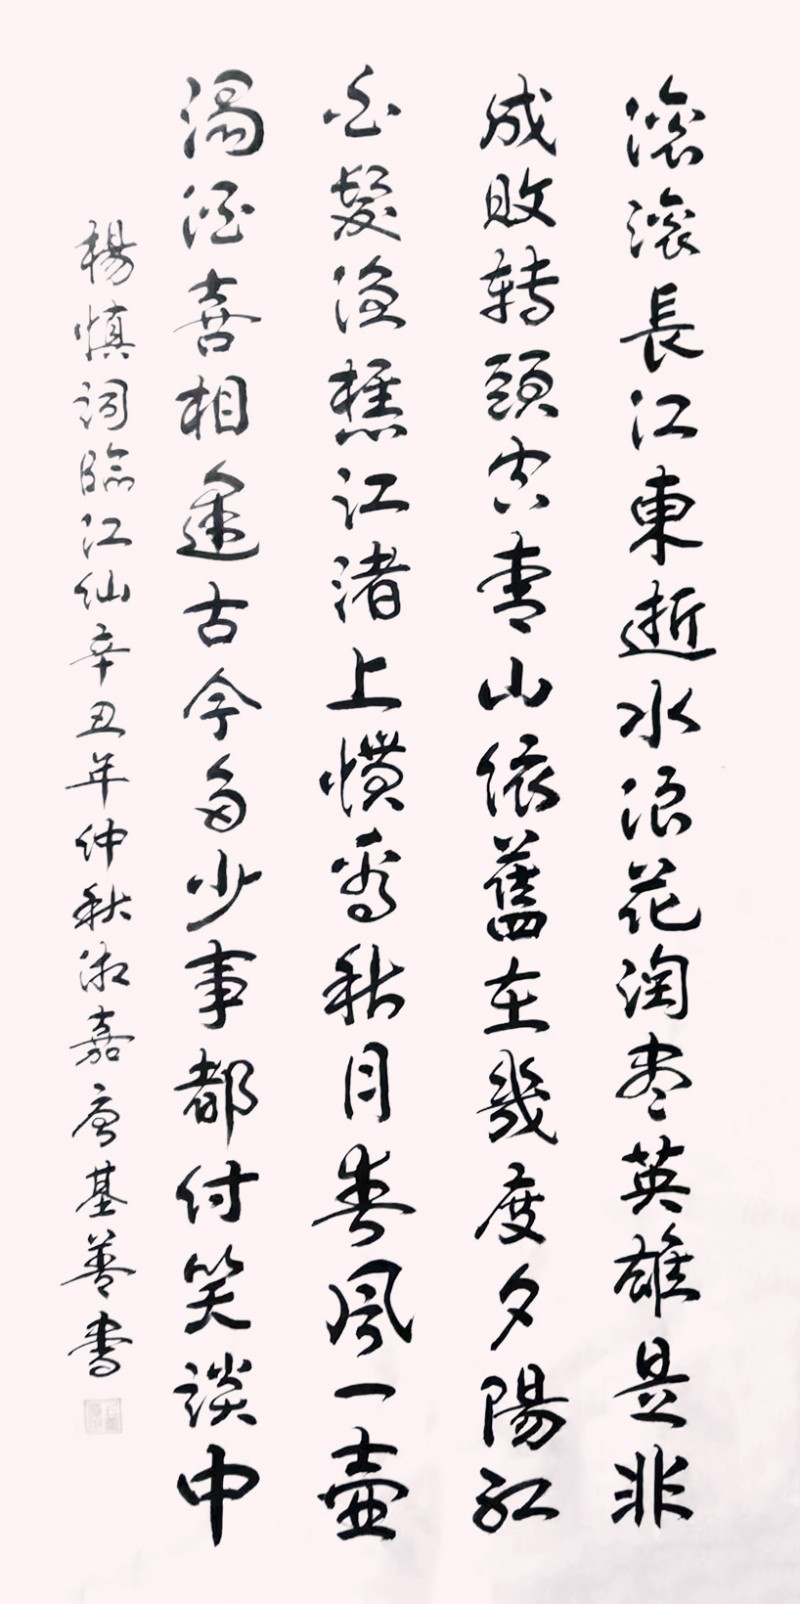 滚滚長江東逝水浪花淘盡英雄是非
成敗轉頭空青山依舊在幾度夕陽紅
白髮漁樵江渚上慣看秋月春風一壺
濁酒喜相逢古今多少事都付笑談中
楊慎詞臨江仙辛丑年仲秋淑嘉唐基善書